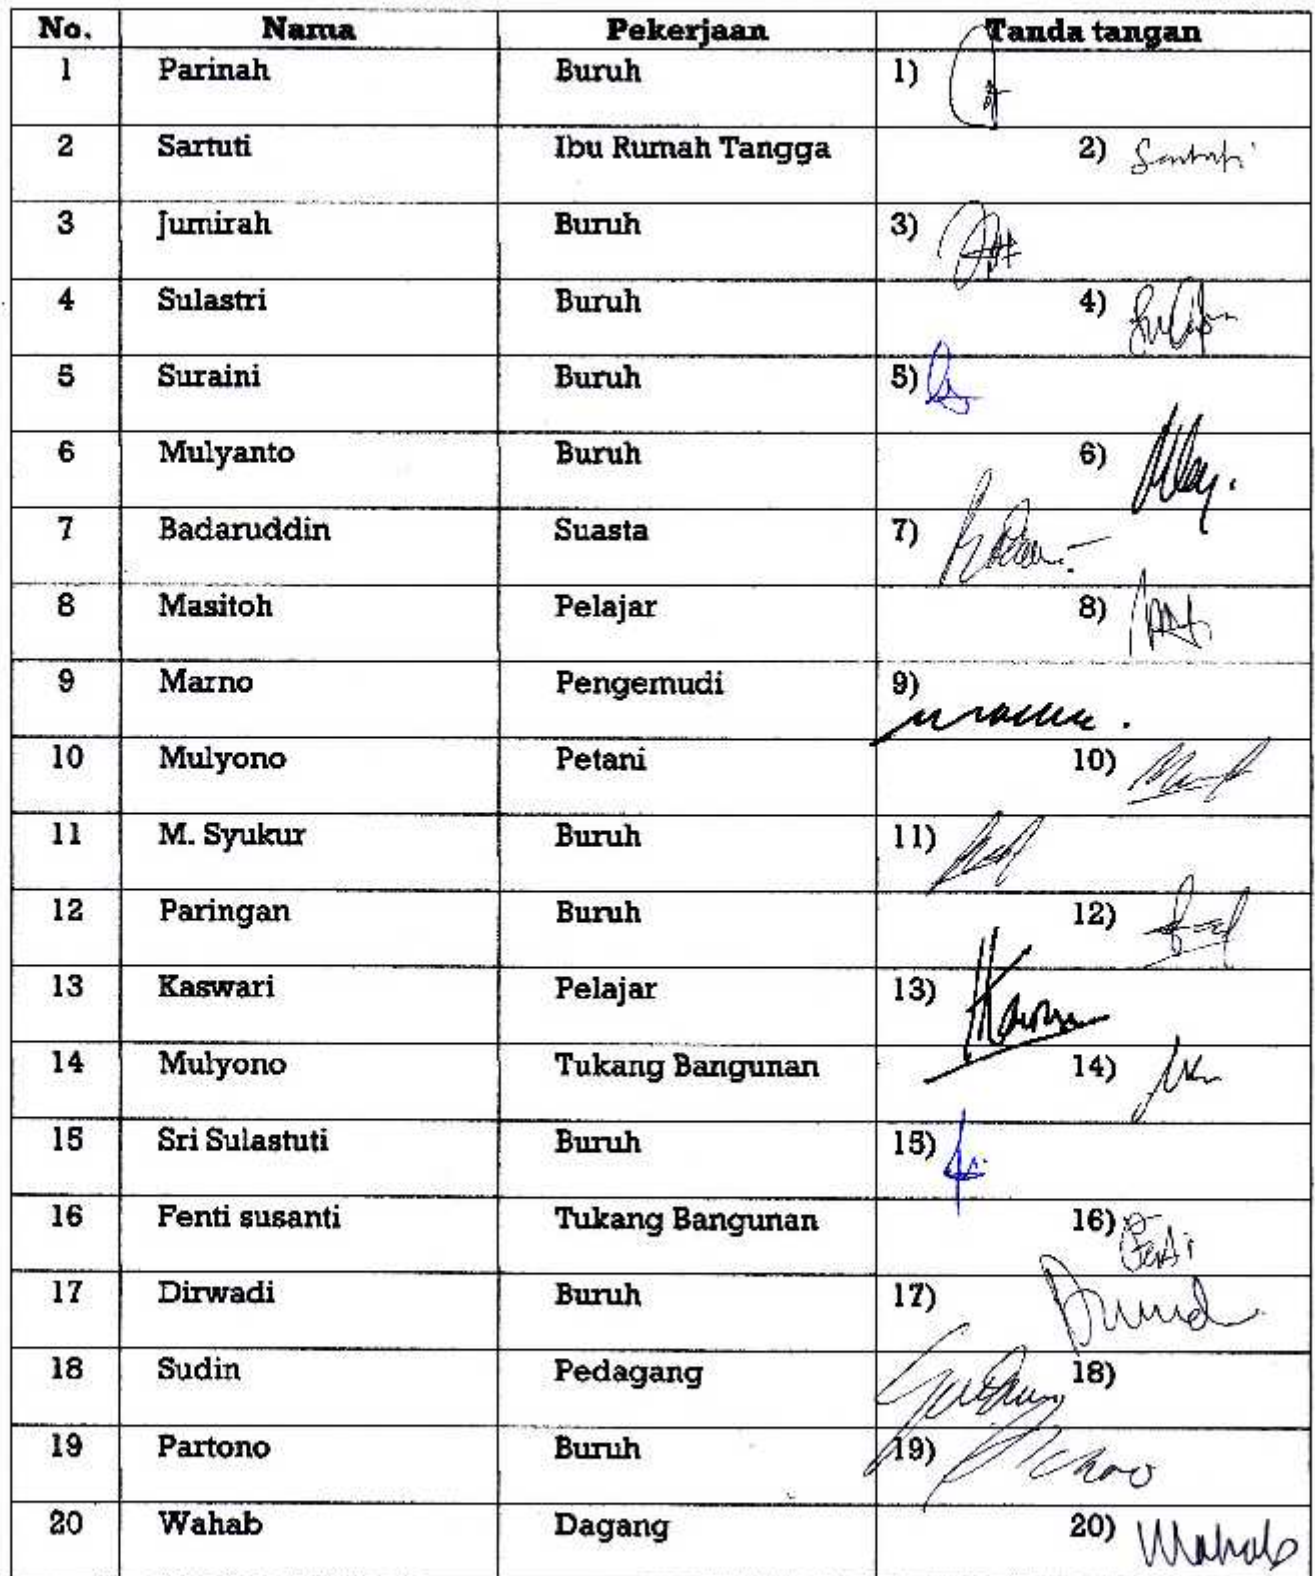 No. Nama Pekerjaan Tanda tangan
1 Parinah Buruh 1)
2 Sartuti Ibu Rumah Tangga 2)
3 Jumirah Buruh 3)
4 Sulastri Buruh 4)
5 Suraini Buruh 5)
6 Mulyanto Buruh 6)
7 Badaruddin Suasta 7)
8 Masitoh Pelajar 8)
9 Marno Pengemudi 9)
10 Mulyono Petani 10)
11 M. Syukur Buruh 11)
12 Paringan Buruh 12)
13 Kaswari Pelajar 13)
14 Mulyono Tukang Bangunan 14)
15 Sri Sulastuti Buruh 15)
16 Fenti susanti Tukang Bangunan 16)
17 Dirwadi Buruh 17)
18 Sudin Pedagang 18)
19 Partono Buruh 19)
20 Wahab Dagang 20) Wahab